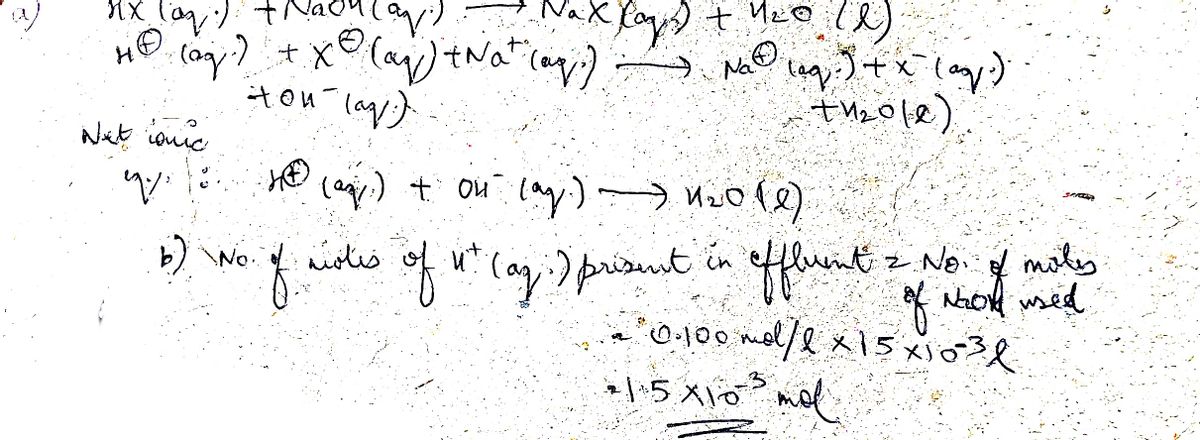 a) HX (aq.) + NaOH (aq.) → NaX (aq.) + H₂O (l)
H⊕ (aq.) + X⊖ (aq.) + Na⁺ (aq.) → Na⊕ (aq.) + X⁻ (aq.)
+ OH⁻ (aq.) + H₂O (l)
Net ionic
eq. : H⊕ (aq.) + OH⁻ (aq.) → H₂O (l)
b) No. of moles of H⁺ (aq.) present in effluent = No. of moles
of NaOH used
= 0.100 mol/l × 15 × 10⁻³ l
= 1.5 × 10⁻³ mol